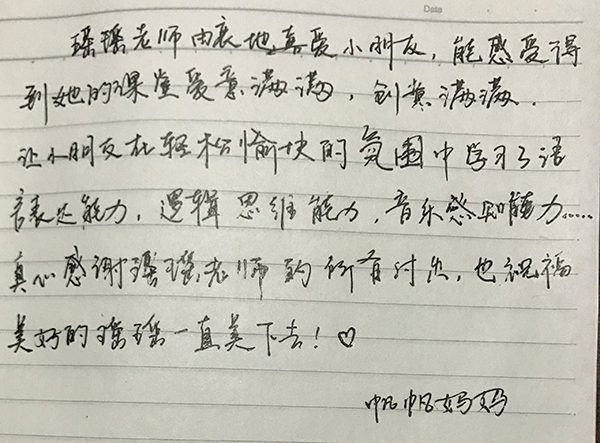 Date
瑶瑶老师由衷地真爱小朋友，能感受得
到她的课堂爱意满满，创意满满.
让小朋友在轻松愉快的氛围中学习了语
言表达能力，逻辑思维能力，音乐感知能力......
真心感谢瑶瑶老师的所有付出，也祝福
美好的瑶瑶一直美下去！♡
帆帆妈妈